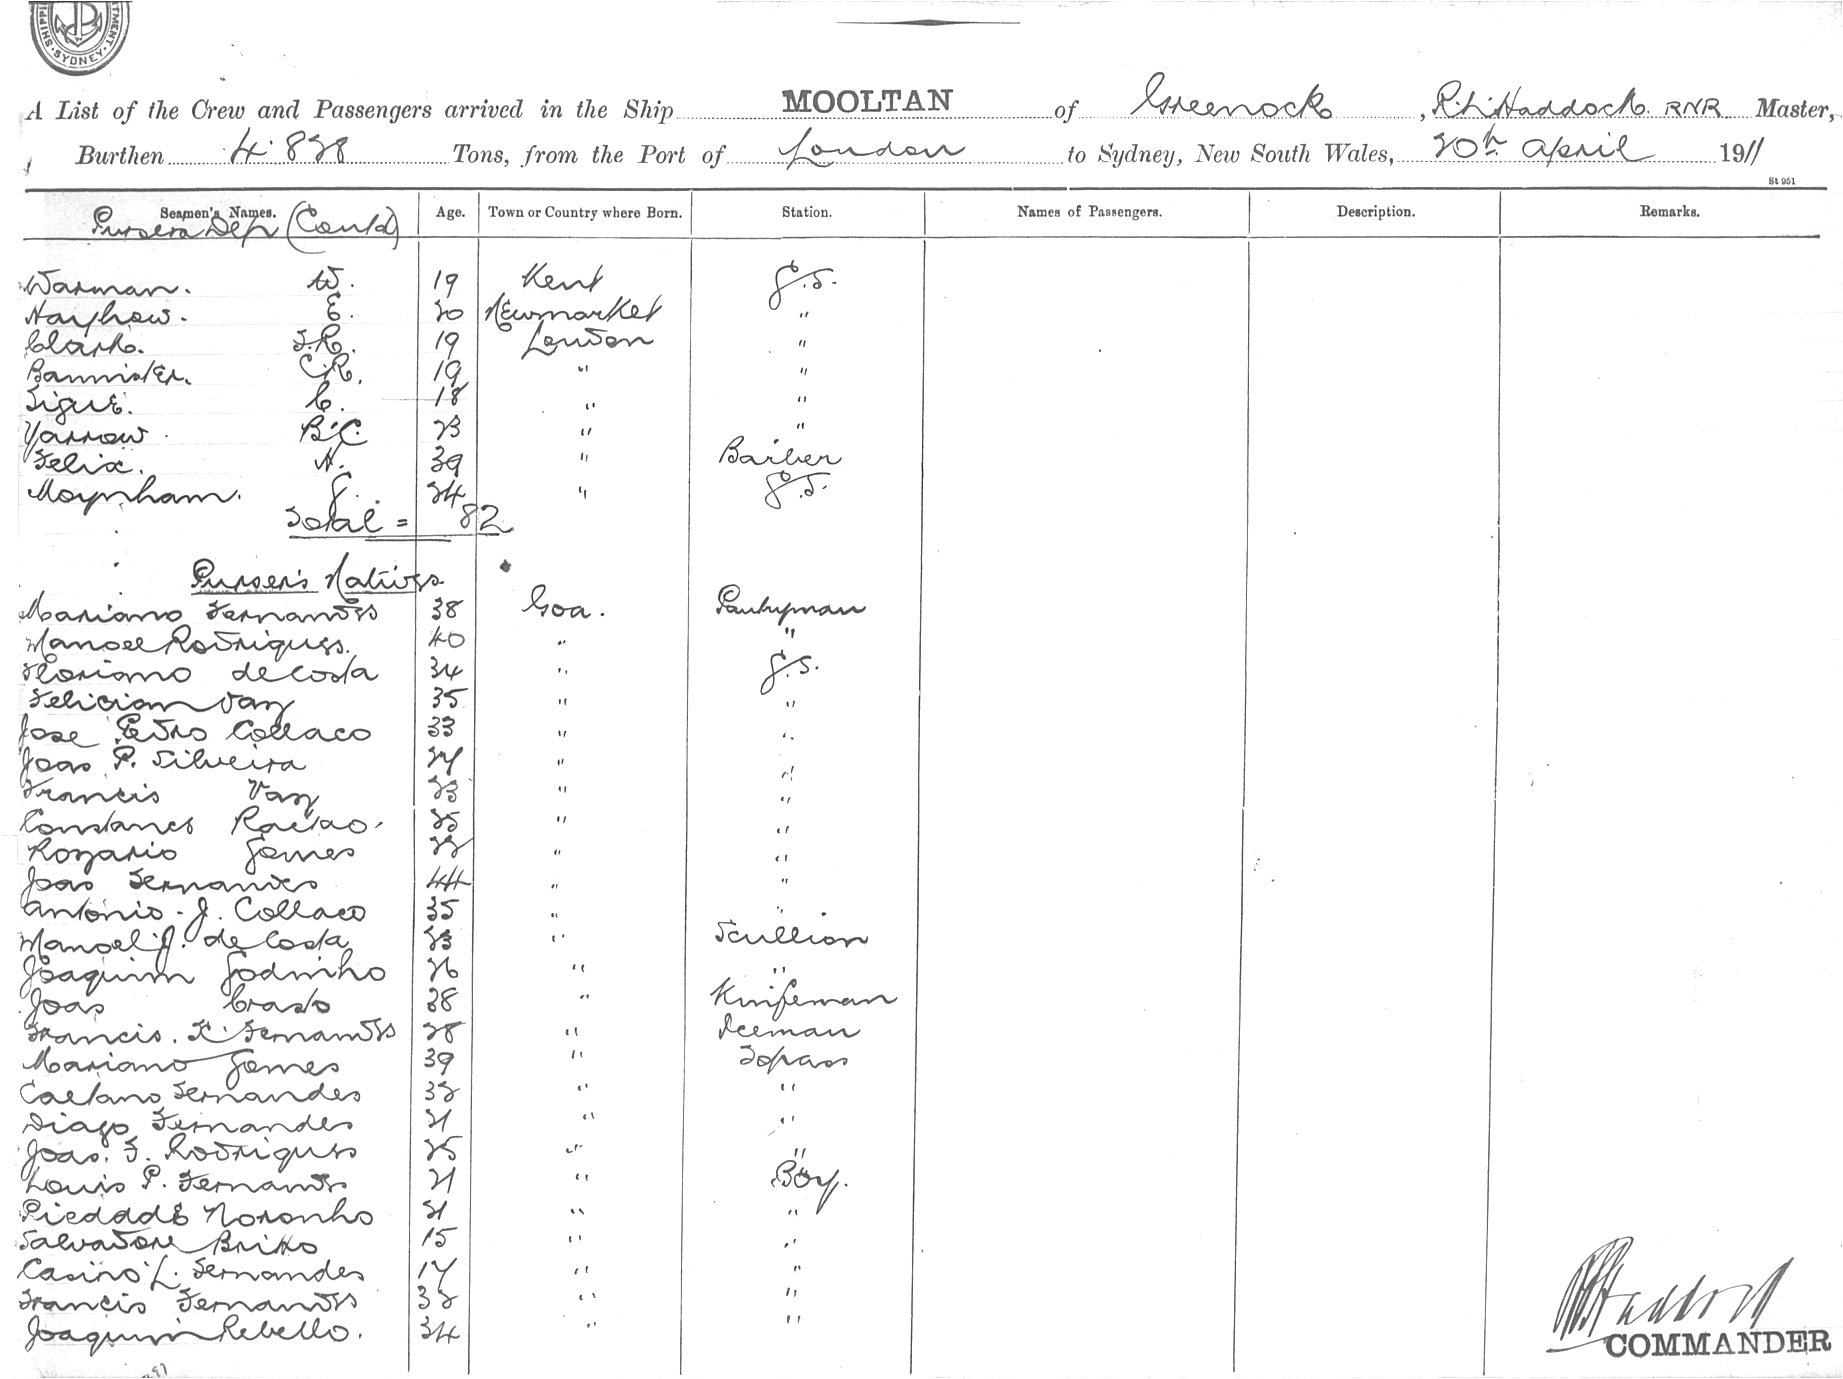 SHIPPI TMENT. SYDNEY
A List of the Crew and Passengers arrived in the Ship MOOLTAN of Greenock, R.L. Haddock. RNR Master,
Burthen 4.828 Tons, from the Port of London to Sydney, New South Wales, 20th April 1911
St 951
Seamen's Names. Age. Town or Country where Born. Station. Names of Passengers. Description. Remarks.
Pursers Dep (Contd)
Warman. W. 19 Kent G.S.
Mayhew. E. 20 Newmarket "
Clark. F.R. 19 London "
Bannister. C.R. 19 " "
Tigue. C. 18 " "
Yarrow B.C. 23 " "
Felix. H. 39 " Barber
Moynham. J. 24 " G.S.
Total = 82
Purser's Natives
Mariano Fernandes 38 Goa. Pantryman
Manoel Rodrigues. 40 " "
Floriano de Costa 34 " G.S.
Felician Vaz 35 " "
Jose Pedro Collaco 33 " "
Joao P. Silveira 27 " "
Francis Vaz 23 " "
Constanes 25 " "
Rozario Gomes 22 " "
Joao Fernandes 44 " "
Antonio J. Collaco 35 " "
Manoel J. de Costa 23 " Scullion
Joaquim Godinho 26 " "
Joao Crasto 28 " Knifeman
Francis. X. Fernandes 28 " Iceman
Mariano Gomes 39 " Topass
Caetano Fernandes 32 " "
Diago Fernandes 21 " "
Joao. F. Rodrigues 25 " "
Louis P. Fernandes 21 " Boy.
Piedade Noronho 21 " "
Salvadore Britto 15 " "
Casino L. Fernandes 17 " "
Francis Fernandes 32 " "
Joaquim Rebello. 34 " "
RL Haddock
COMMANDER